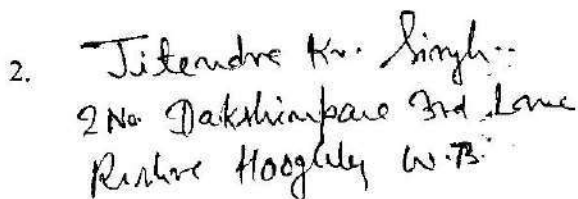 2. Jitendra Kr. Singh..
2 No. Dakshinpara 3rd Lane
Rishra Hooghly W.B.